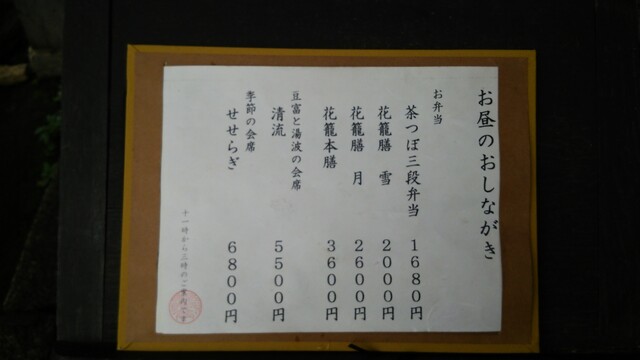 お昼のおしながき
お弁当
茶つぼ三段弁当 1680円
花籠膳 雪 2000円
花籠膳 月 2600円
花籠本膳 3600円
豆富と湯波の会席
清流 5500円
季節の会席
せせらぎ 6800円
十一時から三時のご案内です